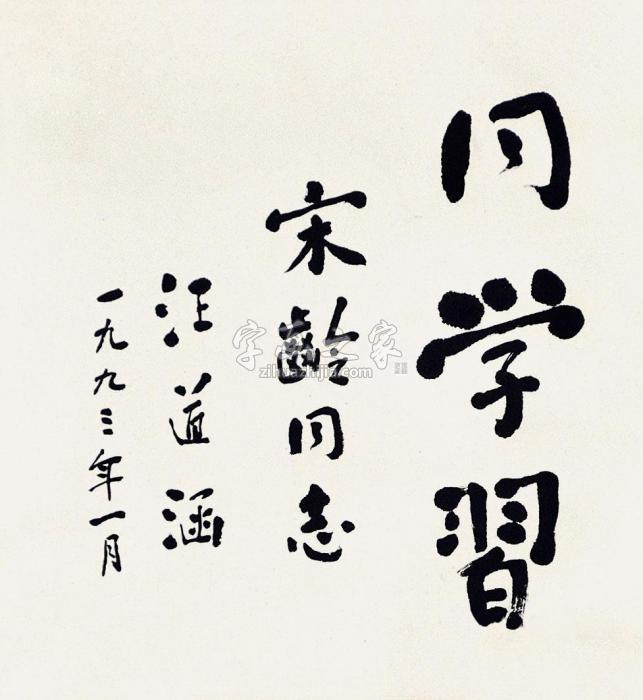 同学習
宋齡同志
汪道涵
一九九三年一月
字画之家
zihuazhijia.com